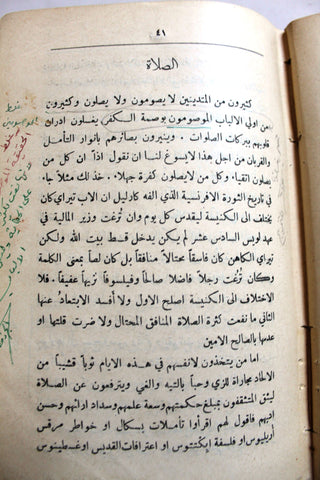 ٤١
الصلاة
كثيرون من المتدينين لا يصومون ولا يصلون وكثيرون
من اولي الالباب الموصومون بوصمة الكفر يغسلون ادران
قلوبهم ببركات الصلوات . وينيرون بصائرهم بأنوار التأمل
والقربان من اجل هذا لا يسوغ لنا ان نقول اذاً ان كل من
يصلون اتقياء وكل من لا يصلون كفرة جهلاء . خذ لك مثلاً جاء
في تاريخ الثورة الافرنسية الذي الفه كارليل ان الاب تيراي كان
يختلف الى الكنيسة ليقدس كل يوم وان تُرغت وزير المالية في
عهد لويس السادس عشر لم يكن يدخل قط بيت الله ولكن
تيراي الكاهن كان فاسقاً محتالاً منافقاً بل كان لصاً بمعنى الكلمة
وكان تُرغت رجلاً فاضلا صالحاً وفيلسوفاً نزيهاً عفيفاً . فلا
الاختلاف الى الكنيسة اصلح الاول ولا أفسد الابتعادُ عنها
الثاني ما نفعت كثرة الصلاة المنافق المحتال ولا ضرت قلتها او
عدمها بالصالح الامين
اما من يتخذون لانفسهم في هذه الايام ثوباً قشيباً من
الالحاد مجاراة للزي وحباً بالتيه والغي ويترفعون عن الصلاة
ليثق المتثقفون بمبلغ حكمتهم وسعة علمهم وسداد ارائهم وحسن
ادبهم فاقول لهم اقرأوا تأملات بسكال او خواطر مرقس
أريليوس او فلسفة إپكتتوس او اعترافات القديس اوغسطينوس